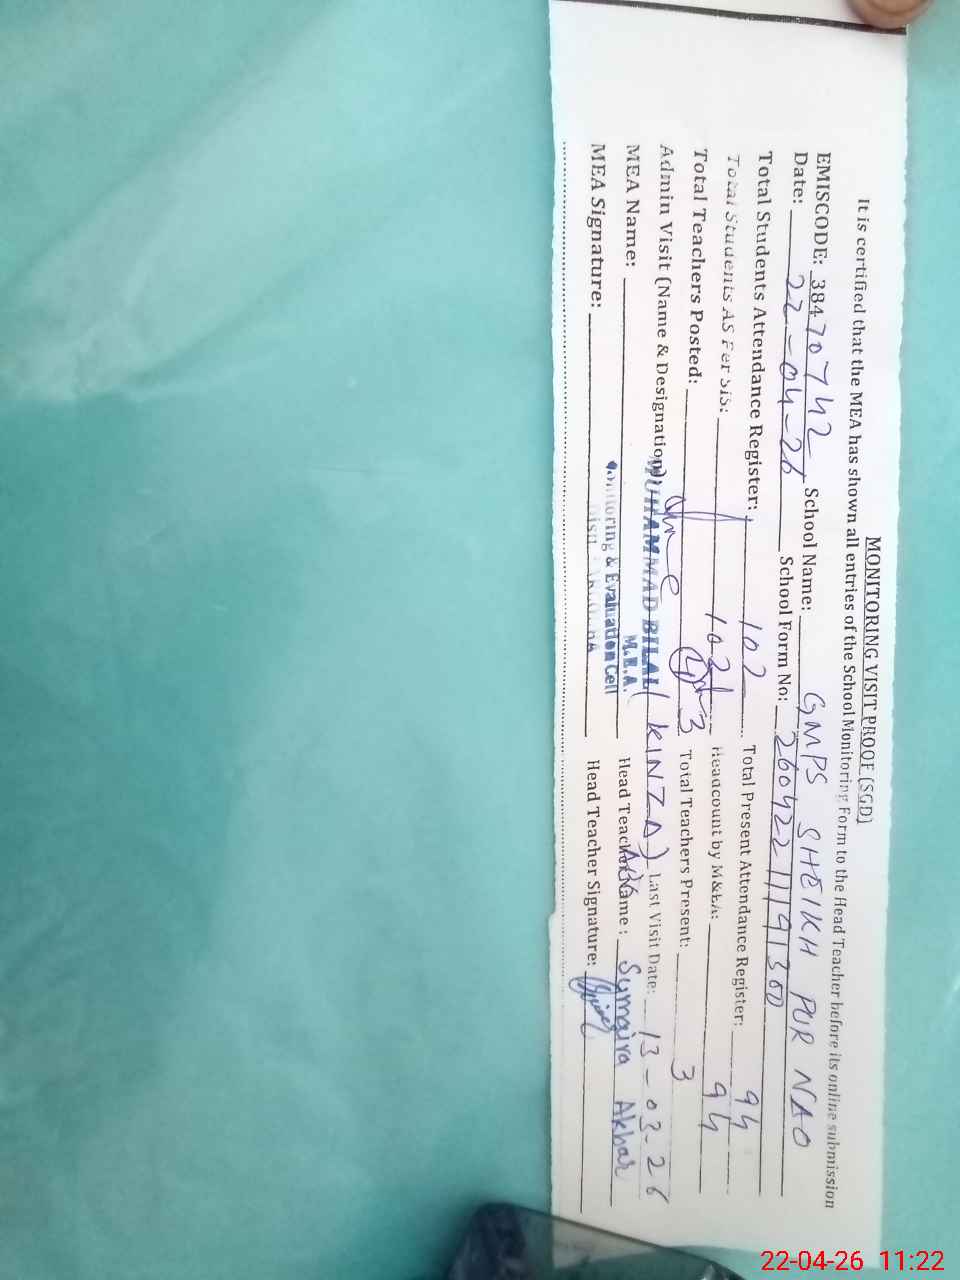 MONITORING VISIT PROOF (SGD)
It is certified that the MEA has shown all entries of the School Monitoring Form to the Head Teacher before its online submission
EMISCODE: 38470742 School Name: GMPS SHEIKH PUR NAO
Date: 22-04-26 School Form No: 2604221119130
Total Students Attendance Register: 102 Total Present Attendance Register: 94
Total Students AS Per SIS: 102 Headcount by M&EA: 94
Total Teachers Posted: 3 Total Teachers Present: 3
Admin Visit (Name & Designation) (KINZA) Last Visit Date: 13-03-26
MUHAMMAD BILAL
MEA Name: Head Teacher Name: Sumaira Akbar
M.E.A.
Monitoring & Evaluation Cell
MEA Signature: Head Teacher Signature:
22-04-26 11:22